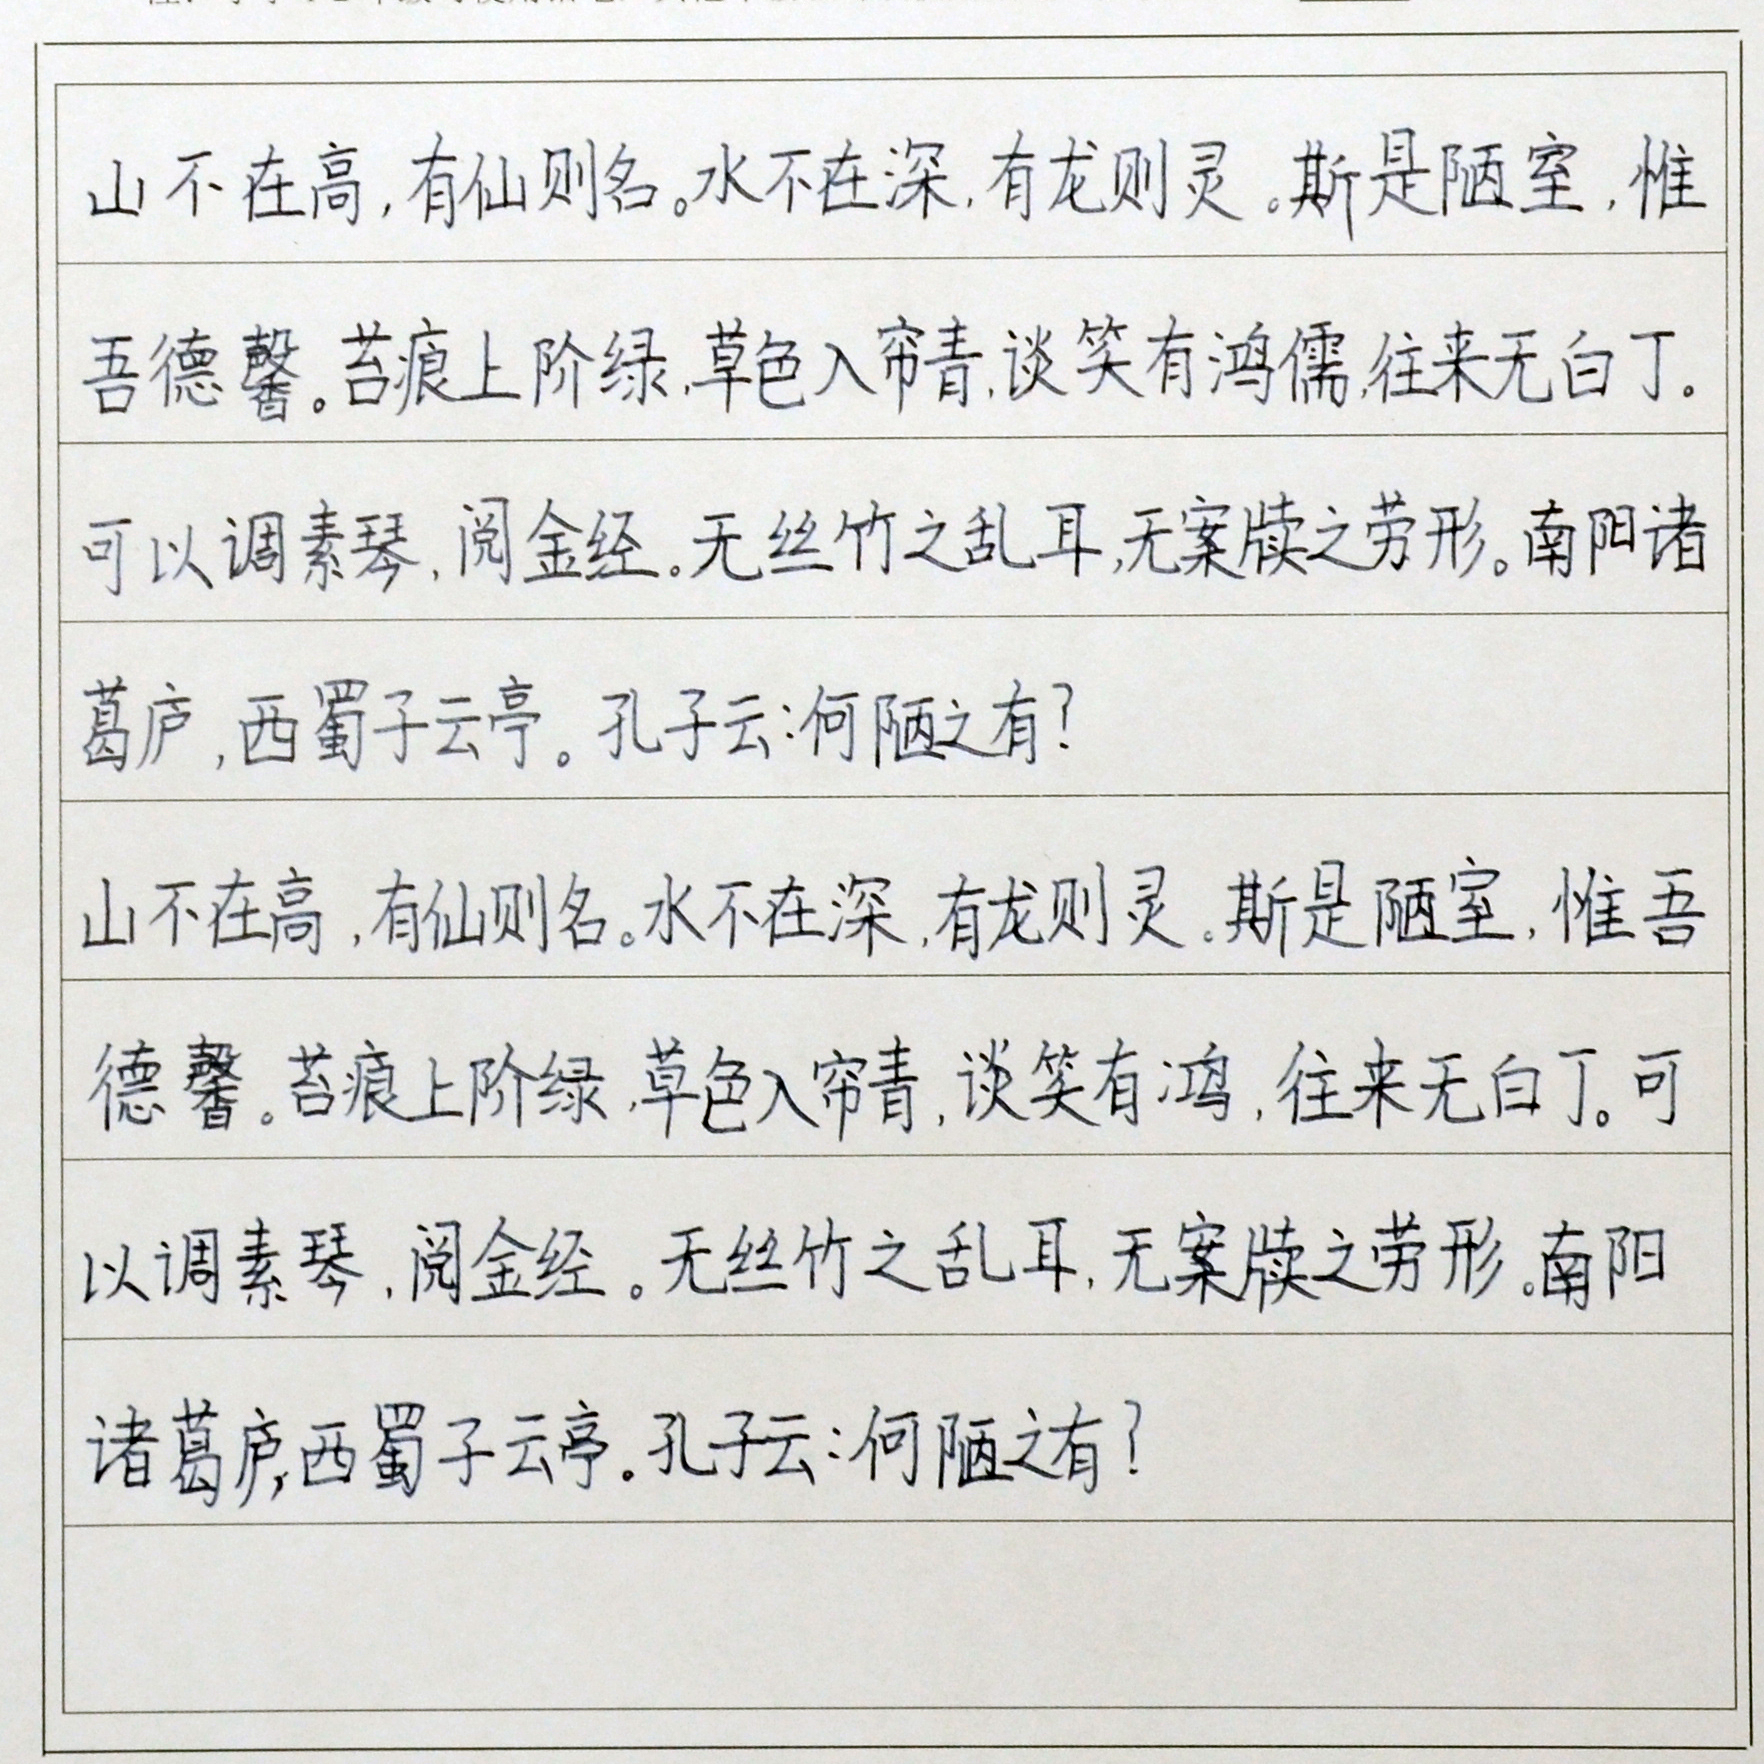 山不在高,有仙则名。水不在深,有龙则灵。斯是陋室,惟
吾德馨。苔痕上阶绿,草色入帘青,谈笑有鸿儒,往来无白丁。
可以调素琴,阅金经。无丝竹之乱耳,无案牍之劳形。南阳诸
葛庐,西蜀子云亭。孔子云:何陋之有?
山不在高,有仙则名。水不在深,有龙则灵。斯是陋室,惟吾
德馨。苔痕上阶绿,草色入帘青,谈笑有鸿,往来无白丁。可
以调素琴,阅金经。无丝竹之乱耳,无案牍之劳形。南阳
诸葛庐,西蜀子云亭。孔子云:何陋之有?